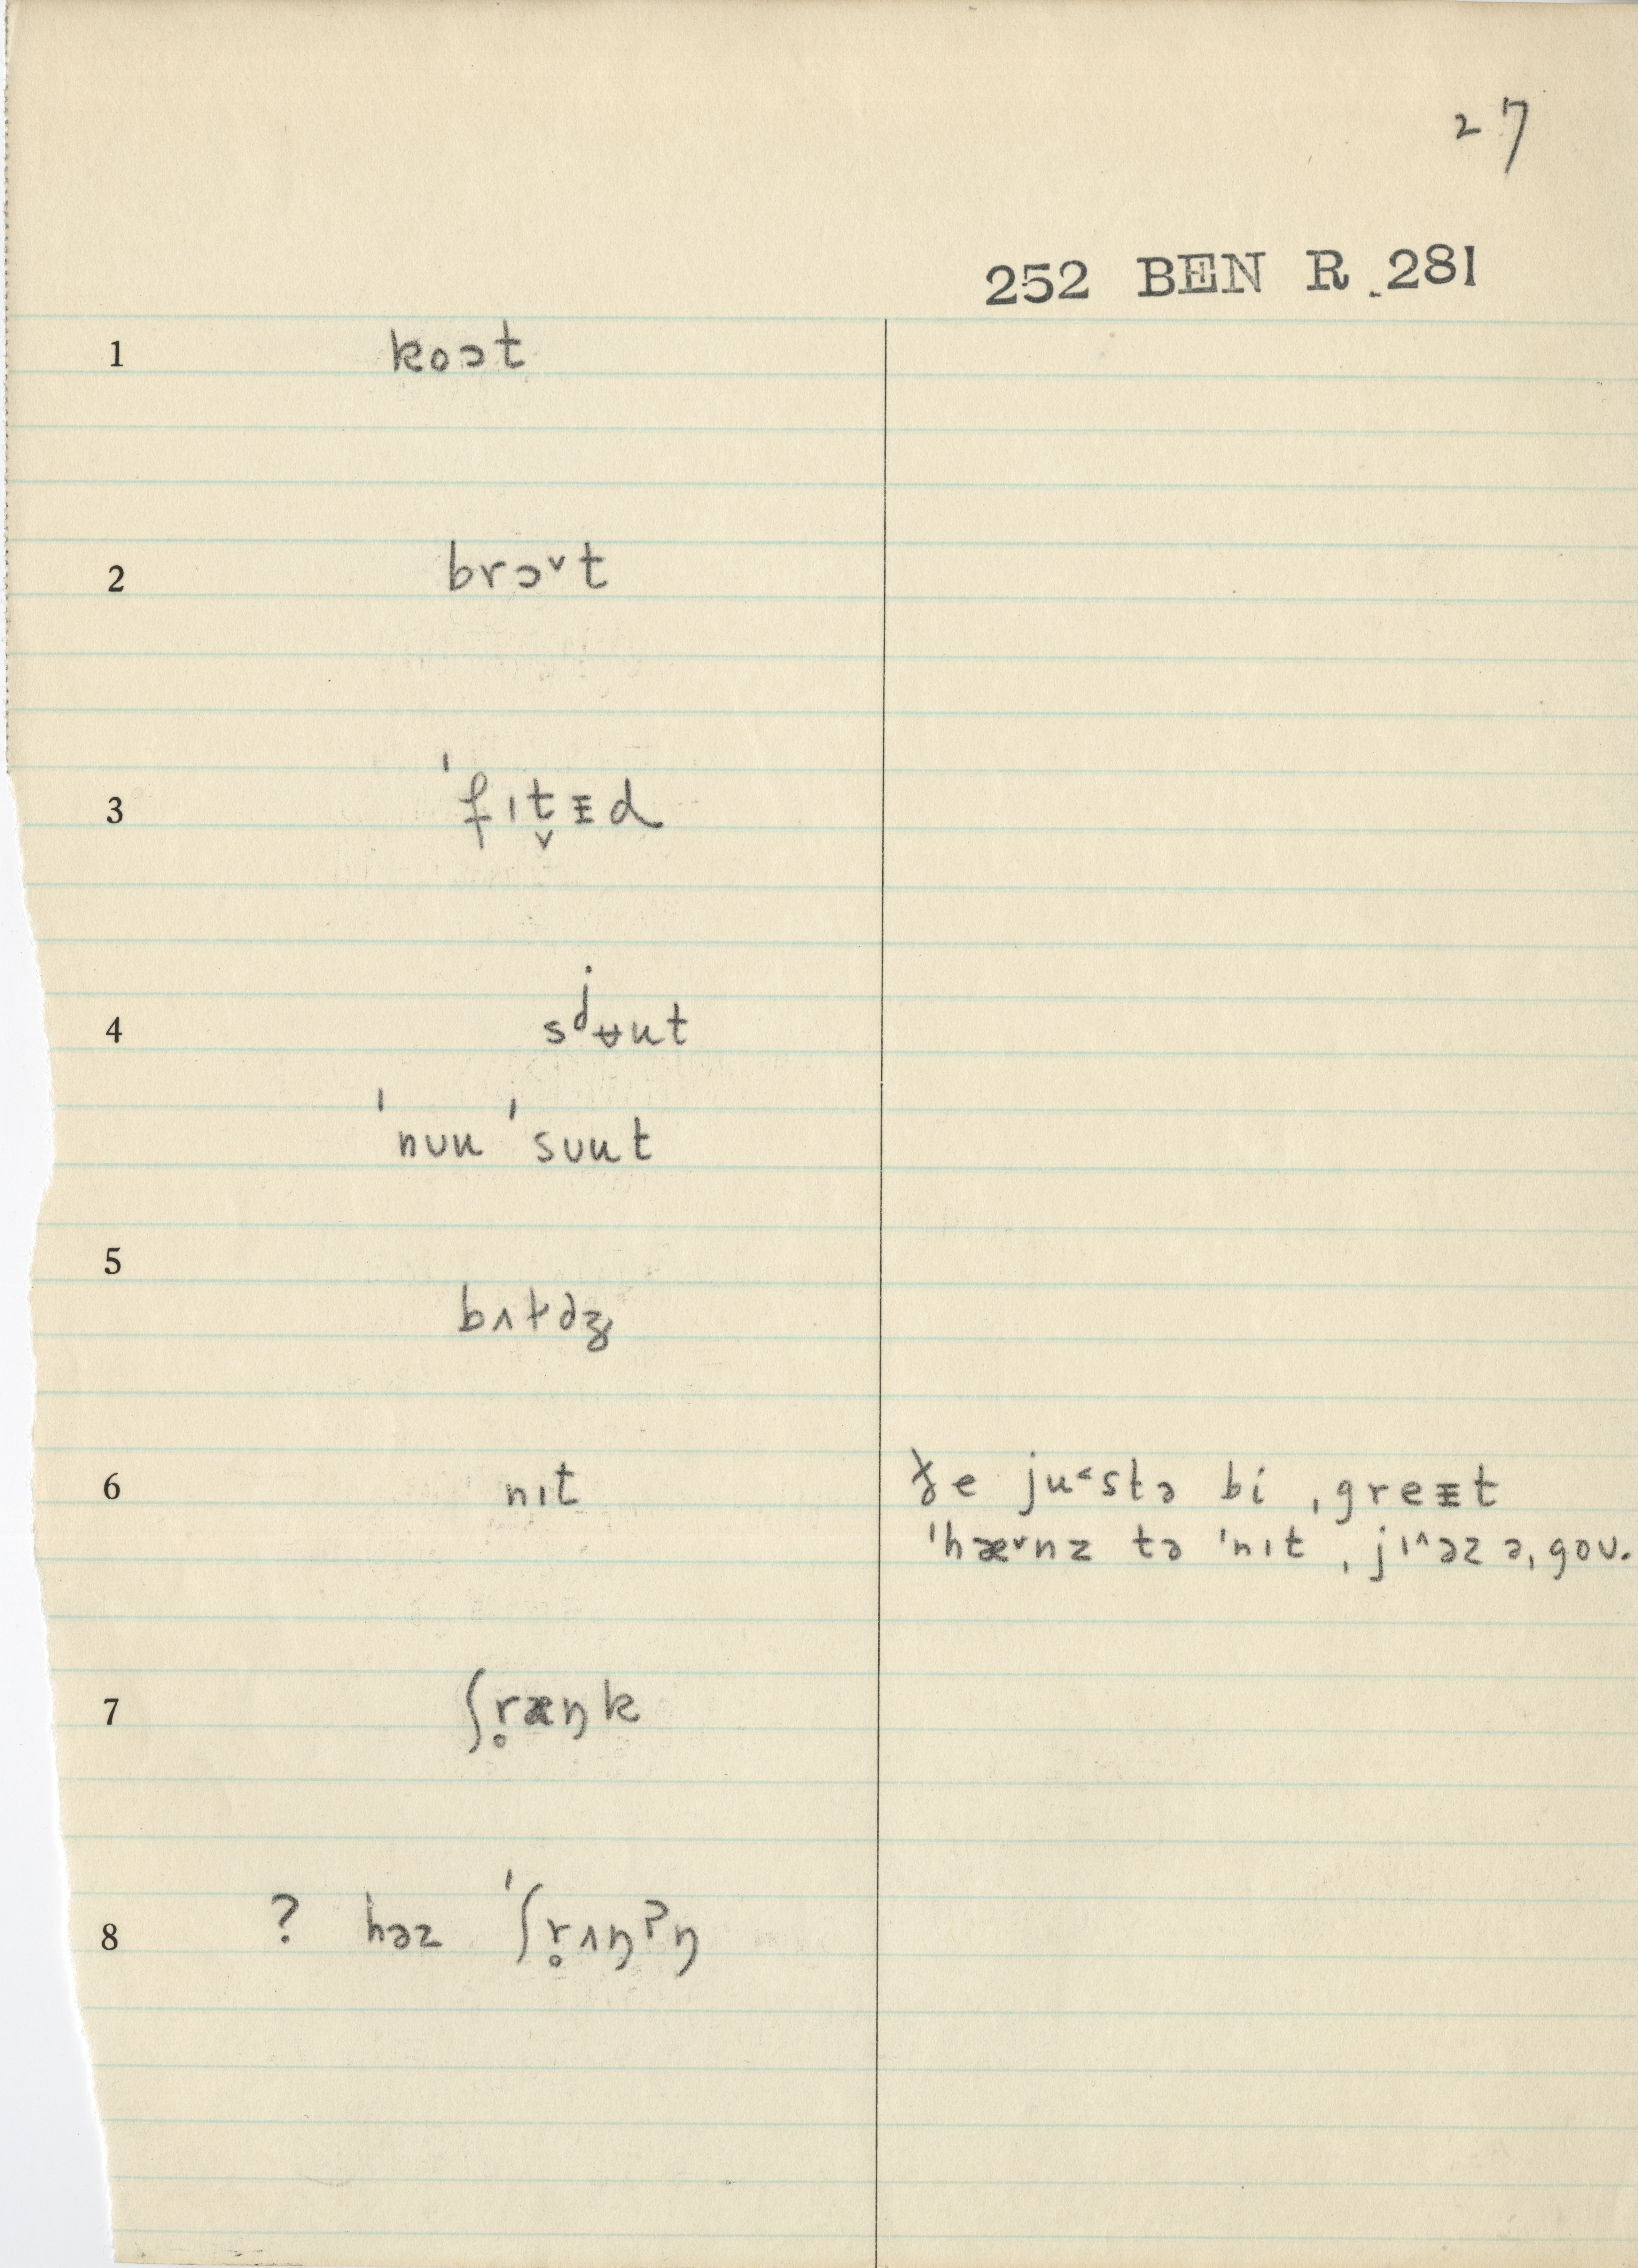 27
252 BEN R 281
1 koɔt
2 brɔ˅t
3 ˈfɪt̬ᵻd
4 sʲʉut
ˈnʊu ˈsʊut
5
6 nɪt ðe ju˂stə bi ˌgreᵻt
ˈhæ˅nz tə ˈnɪt ˌjɪ˄əz əˌgoʊ.
7 ʃr̥æŋk
8 ? həz ˈʃr̥ʌŋʔŋ